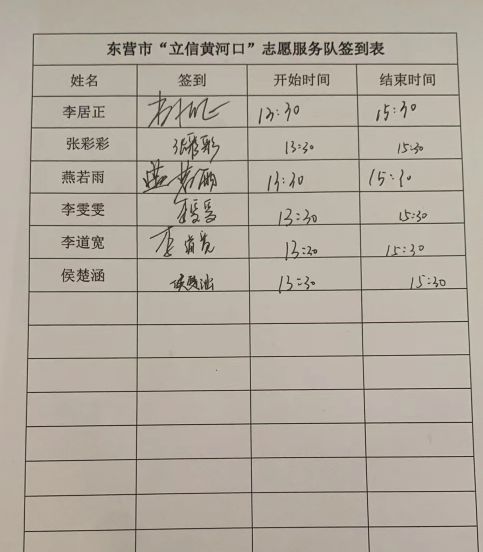 东营市“立信黄河口”志愿服务队签到表
姓名 签到 开始时间 结束时间
李居正 13:30 15:30
张彩彩 张彩彩 13:30 15:30
燕若雨 燕若雨 13:30 15:30
李雯雯 13:30 15:30
李道宽 李道宽 13:30 15:30
侯楚涵 侯楚涵 13:30 15:30